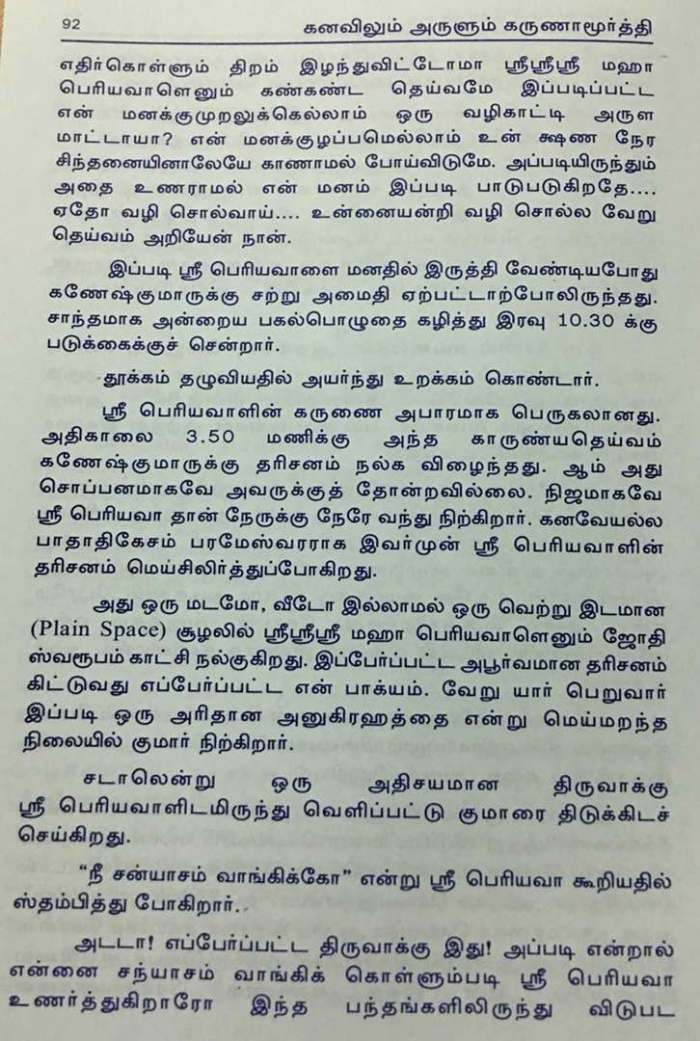 92 கனவிலும் அருளும் கருணாமூர்த்தி
எதிர்கொள்ளும் திறம் இழந்துவிட்டோமா ஸ்ரீஸ்ரீஸ்ரீ மஹா
பெரியவாளெனும் கண்கண்ட தெய்வமே இப்படிப்பட்ட
என் மனக்குமுறலுக்கெல்லாம் ஒரு வழிகாட்டி அருள
மாட்டாயா? என் மனக்குழப்பமெல்லாம் உன் க்ஷண நேர
சிந்தனையினாலேயே காணாமல் போய்விடுமே. அப்படியிருந்தும்
அதை உணராமல் என் மனம் இப்படி பாடுபடுகிறதே....
ஏதோ வழி சொல்வாய்.... உன்னையன்றி வழி சொல்ல வேறு
தெய்வம் அறியேன் நான்.
இப்படி ஸ்ரீ பெரியவாளை மனதில் இருத்தி வேண்டியபோது
கணேஷ்குமாருக்கு சற்று அமைதி ஏற்பட்டாற்போலிருந்தது.
சாந்தமாக அன்றைய பகல்பொழுதை கழித்து இரவு 10.30 க்கு
படுக்கைக்குச் சென்றார்.
தூக்கம் தழுவியதில் அயர்ந்து உறக்கம் கொண்டார்.
ஸ்ரீ பெரியவாளின் கருணை அபாரமாக பெருகலானது.
அதிகாலை 3.50 மணிக்கு அந்த காருண்யதெய்வம்
கணேஷ்குமாருக்கு தரிசனம் நல்க விழைந்தது. ஆம் அது
சொப்பனமாகவே அவருக்குத் தோன்றவில்லை. நிஜமாகவே
ஸ்ரீ பெரியவா தான் நேருக்கு நேரே வந்து நிற்கிறார். கனவேயல்ல
பாதாதிகேசம் பரமேஸ்வரராக இவர்முன் ஸ்ரீ பெரியவாளின்
தரிசனம் மெய்சிலிர்த்துப்போகிறது.
அது ஒரு மடமோ, வீடோ இல்லாமல் ஒரு வெற்று இடமான
(Plain Space) சூழலில் ஸ்ரீஸ்ரீஸ்ரீ மஹா பெரியவாளெனும் ஜோதி
ஸ்வரூபம் காட்சி நல்குகிறது. இப்பேர்ப்பட்ட அபூர்வமான தரிசனம்
கிட்டுவது எப்பேர்ப்பட்ட என் பாக்யம். வேறு யார் பெறுவார்
இப்படி ஒரு அரிதான அனுகிரஹத்தை என்று மெய்மறந்த
நிலையில் குமார் நிற்கிறார்.
சடாலென்று ஒரு அதிசயமான திருவாக்கு
ஸ்ரீ பெரியவாளிடமிருந்து வெளிப்பட்டு குமாரை திடுக்கிடச்
செய்கிறது.
“நீ சன்யாசம் வாங்கிக்கோ” என்று ஸ்ரீ பெரியவா கூறியதில்
ஸ்தம்பித்து போகிறார்.
அடடா! எப்பேர்ப்பட்ட திருவாக்கு இது! அப்படி என்றால்
என்னை சந்யாசம் வாங்கிக் கொள்ளும்படி ஸ்ரீ பெரியவா
உணர்த்துகிறாரோ இந்த பந்தங்களிலிருந்து விடுபட